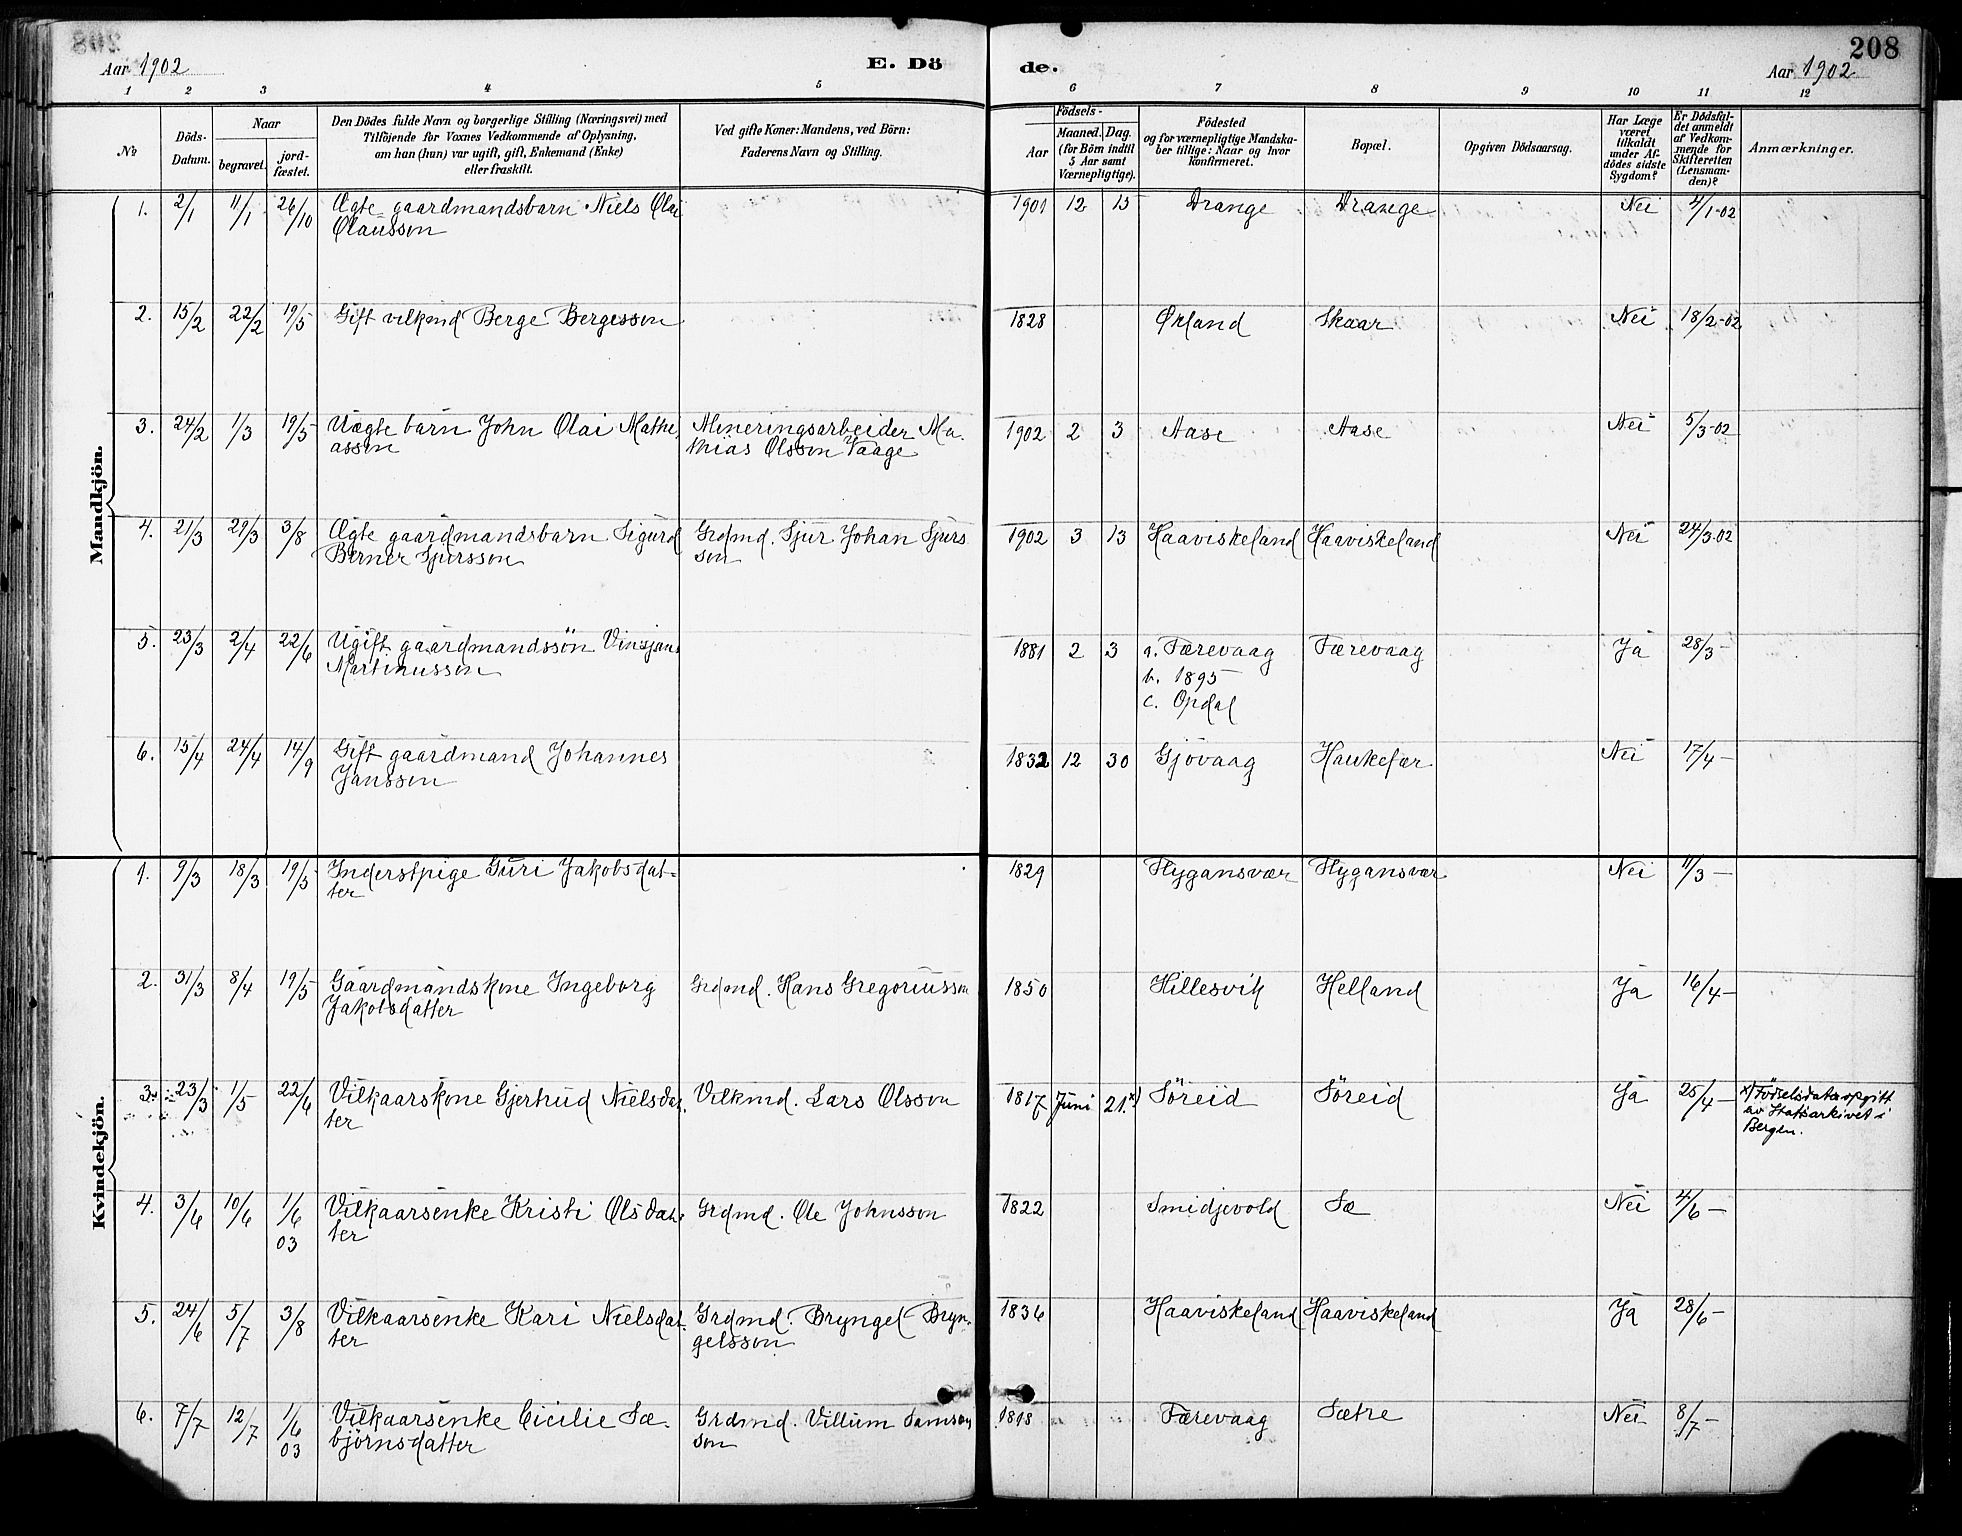 208
Aar 1902 E. Dö de. Aar 1902
1 2 3 4 5 6 7 8 9 10 11 12
No
Döds-Datum.
Naar
begravet.
jord-fæstet.
Den Dödes fulde Navn og borgerlige Stilling (Næringsvei) med
Tilföjende for Voxnes Vedkommende af Oplysning,
om han (hun) var ugift, gift, Enkemand (Enke)
eller fraskilt.
Ved gifte Koner: Mandens, ved Börn:
Faderens Navn og Stilling.
Födsels-
Aar
Maaned. Dag.
(for Börn indtil
5 Aar samt
Værnepligtige).
Födested
og for værnepligtige Mandska-
ber tillige: Naar og hvor
konfirmeret.
Bopæl.
Opgiven Dödsaarsag.
Har Læge
været
tilkaldt
under Af-
dödes sidste
Sygdom?
Er Dödsfal-
det anmeldt
af Vedkom-
mende for
Skifteretten
(Lensman-
den)?
Anmærkninger.
Mandkjön.
1. 2/1 11/1 26/10 Ægte gaardmandsbarn Niels Olai 1901 12 15 Drange Drange Nei 4/1-02
Olausson
2. 15/2 22/2 19/5 Gift vilkmd Berge Bergesson 1828 Økland Skaar Nei 18/2-02
3. 24/2 1/3 19/5 Uægte barn John Olai Mathi- Mineringsarbeider Ma- 1902 2 3 Aase Aase Nei 5/3-02
asson thias Olsson Vaage
4. 21/3 29/3 3/8 Ægte gaardmandsbarn Sigurd Grdmd. Sjur Johan Sjurs 1902 3 13 Haaviskeland Haaviskeland Nei 24/3-02
Berner Sjursson son
5. 23/3 2/4 22/6 Ugift gaardmandssön Vinsjans 1881 2 3 a. Færevaag Færevaag Ja 28/3-
Martinusson b. 1895
c. Opdal
6. 15/4 24/4 14/9 Gift gaardmand Johannes 1832 12 30 Gjövaag Haukefær Nei 17/4-
Jansson
Kvindekjön.
1. 9/3 18/3 19/5 Inderstpige Guri Jakobsdat- 1829 Hygansvær Hygansvær Nei 11/3-
ter
2. 31/3 8/4 19/5 Gaardmandskone Ingeborg Grdmd. Hans Gregoriusson 1850 Hillesvik Helland Ja 16/4-
Jakobsdatter
3. 23/3 1/5 22/6 Vilkaarskone Gjertrud Nielsdat- Vilkmd. Lars Olsson 1817 Juni 21.x) Söreid Söreid Ja 25/4- x) Födselsdata opgitt
ter av Statsarkivet i
Bergen.
4. 3/6 10/6 1/6 Vilkaarsenke Kristi Olsdat- Grdmd. Ole Johnsson 1822 Smidjevold Sæ Nei 4/6-
03 ter
5. 24/6 5/7 3/8 Vilkaarsenke Kari Nielsdat- Grdmd. Bryngel Bryn- 1836 Haaviskeland Haaviskeland Ja 28/6-
ter gelsson
6. 7/7 12/7 1/6 Vilkaarsenke Cicilie Sæ- Grdmd. Villum Samson 1818 Færevaag Sætre Nei 8/7-
03 björnsdatter son